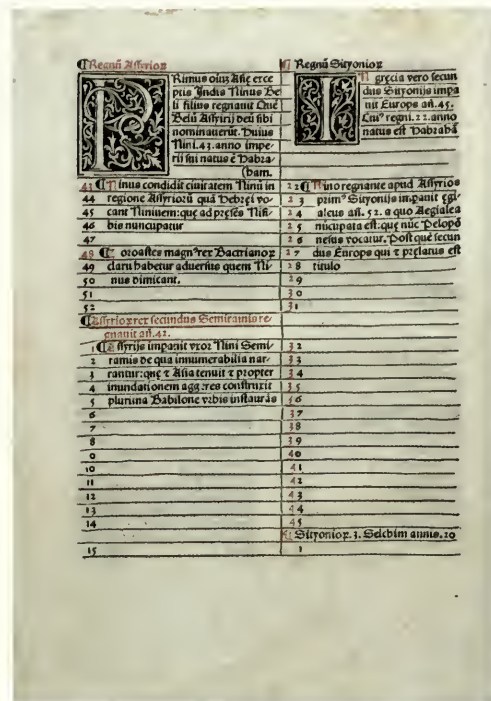 ¶Regnū Assyrioꝝ
PRimus oīuꝫ Asię exce
ptis Indis Ninus Be
li filius regnauit Quē
Belū Assyrij deū sibi
nominauerūt. Huius
Nini.43.anno impe-
rij sui natus ē Habra-
(ham.
43 ¶Ninus condidit ciuitatem Ninū in
44 regione Assyrioꝝū quā Hebręi vo-
45 cant Niniuem:que ad pręsēs Nisi-
46 bis nuncupatur
47
48 ¶Zoroastes magnꝰ rex Bactrianoꝝ
49 clarꝰ habetur aduersus quem Ni-
50 nus dimicauit.
51
52
¶Assyrioꝝ rex secundus Semiramis re-
gnauit añ.42.
1 ¶Assyrijs impauit vxor Nini Semi-
2 ramis de qua innumerabilia nar-
3 rantur:que ⁊ Asiā tenuit ⁊ propter
4 inundationem aggeres construxit
5 plurima Babilonę vrbis instaurās
6
7
8
9
10
11
12
13
14
15
¶ Regnū Sicyonioꝝ
IN gręcia vero secun
dus Sicyonijs impa
uit Europs añ.45.
Cuiꝰ regni.22.anno
natus est Habrahā
22 ¶Nino regnante apud Assyrios
23 primꝰ Sicyonijs impauit ęgi-
24 aleus añ. 52. a quo Aegialea
25 nūcupata est:que nūc Pelopō
26 nesus vocatur. Post quē secun
27 dus Europs qui ⁊ prelatus est
28 titulo
29
30
31
32
33
34
35
36
37
38
39
40
41
42
43
44
45
¶ Sicyonioꝝ.3. Selchim annis.20
1